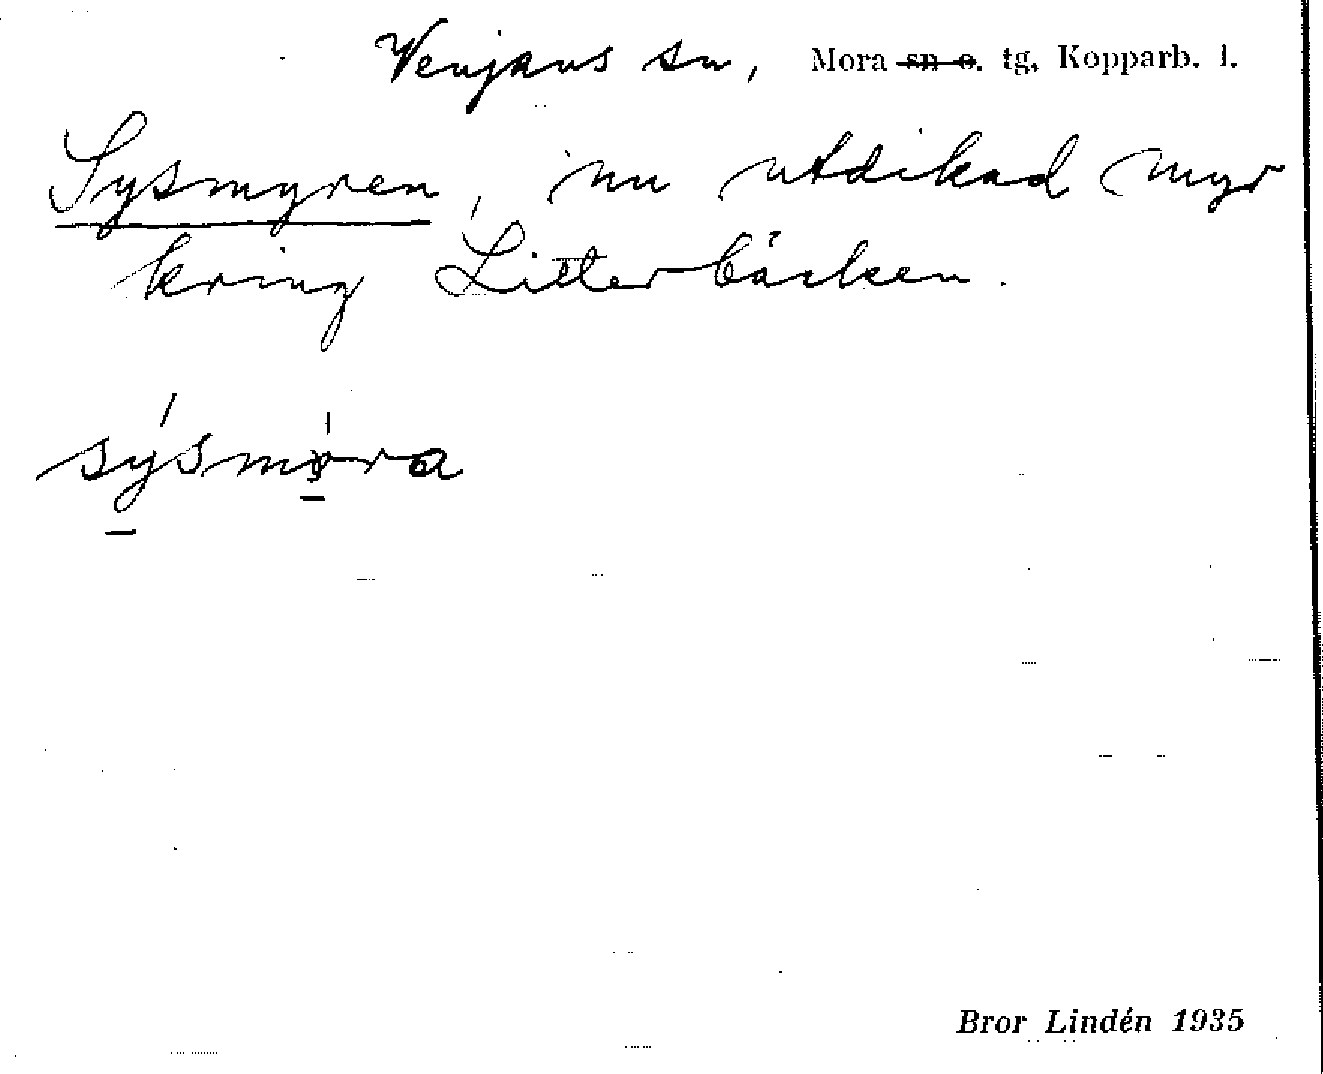 Venjans sn, Mora sn o. tg, Kopparb. l.
Sysmyren, nu utdikad myr
kring Litterbäcken.
Bror Lindén 1935